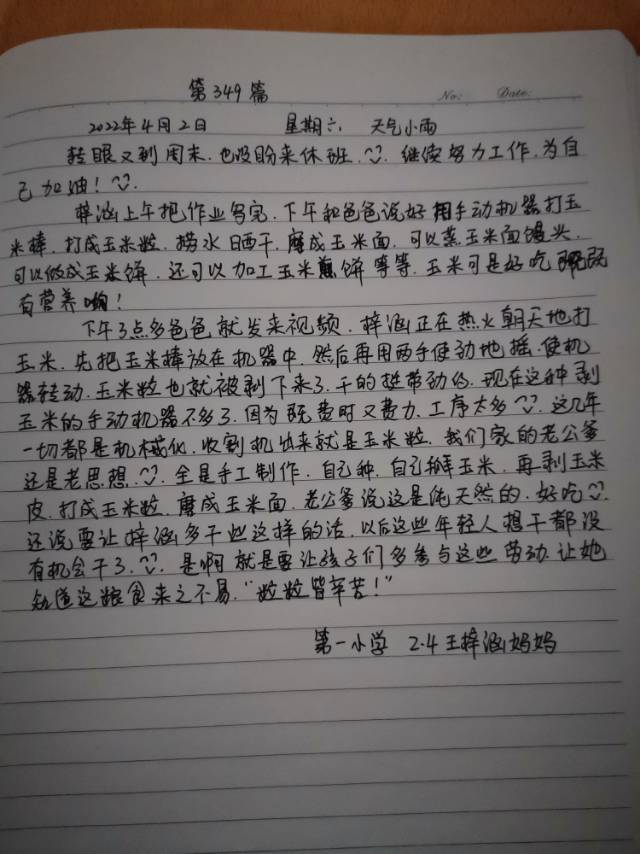 第349篇
No: Date:
2022年4月2日 星期六 天气小雨
转眼又到周末.也没盼来休班.继续努力工作.为自
己加油!
梓涵上午把作业写完.下午和爸爸说好用手动机器打玉
米棒.打成玉米粒.捞水晒干.磨成玉米面.可以蒸玉米面馒头.
可以做成玉米饼.还可以加工玉米煎饼等等.玉米可是好吃既
有营养呦!
下午3点多爸爸就发来视频.梓涵正在热火朝天地打
玉米.先把玉米棒放在机器中.然后再用两手使劲地摇.使机
器转动.玉米粒也就被剥下来了.干的挺带劲的.现在这种剥
玉米的手动机器不多了.因为既费时又费力.工序太多.这几年
一切都是机械化.收割机出来就是玉米粒.我们家的老公爹
还是老思想.全是手工制作.自己种.自己掰玉米.再剥玉米
皮.打成玉米粒.磨成玉米面.老公爹说这是纯天然的.好吃
还说要让梓涵多干些这样的活.以后这些年轻人想干都没
有机会干了.是啊就是要让孩子们多参与这些劳动.让她
知道这粮食来之不易."粒粒皆辛苦!"
第一小学 2.4王梓涵妈妈